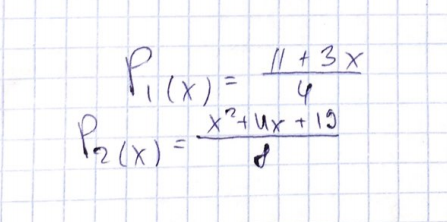 P₁(x) = (11 + 3x)/4
P₂(x) = (x² + 4x + 19)/8